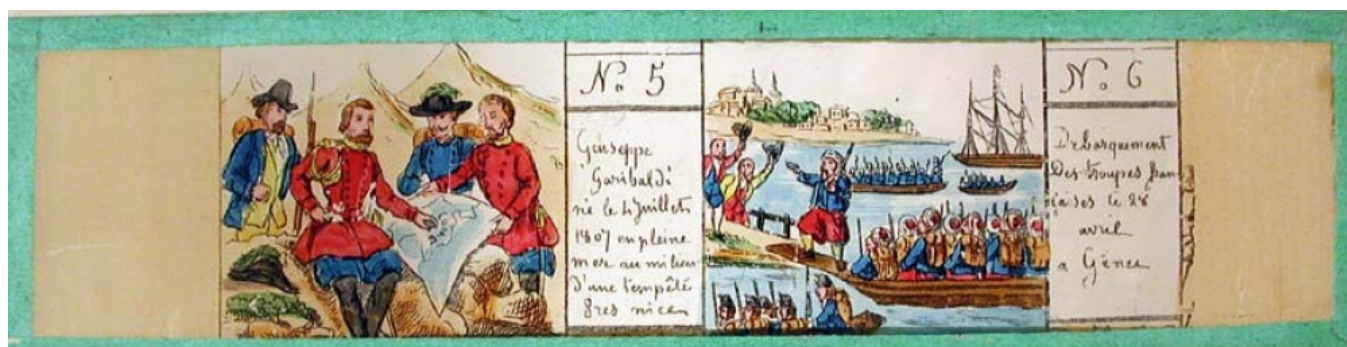 No. 5
Giuseppe
Garibaldi
né le 4 Juillet
1807 en pleine
mer au milieu
d'une tempête
Pres nice
No. 6
Debarquement
Des troupes fran
çaises le 28
avril
a Gênes